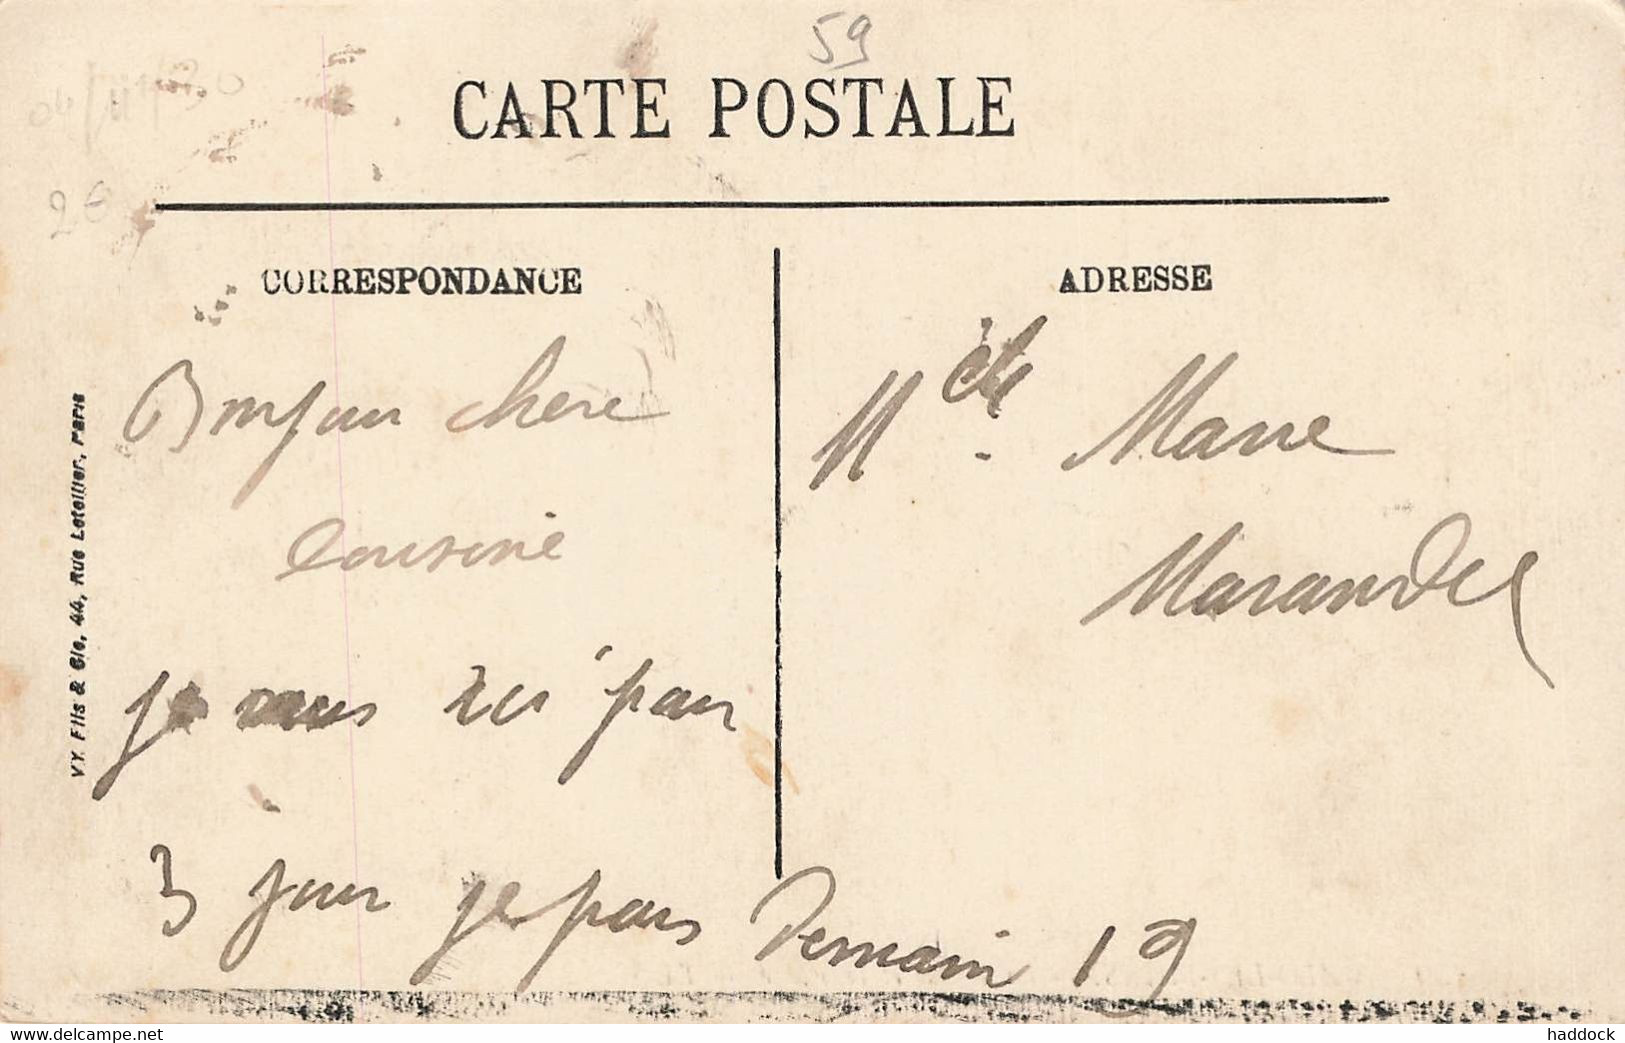 59
04/11/30
CARTE POSTALE
2€
CORRESPONDANCE
ADRESSE
Bonjour chere
cousine
je vous ici pour
3 jour je pars Demain 19
Melle. Marie
Marandel
V.Y. Fils & Cie, 44, Rue Letellier, Paris
www.delcampe.net
haddock